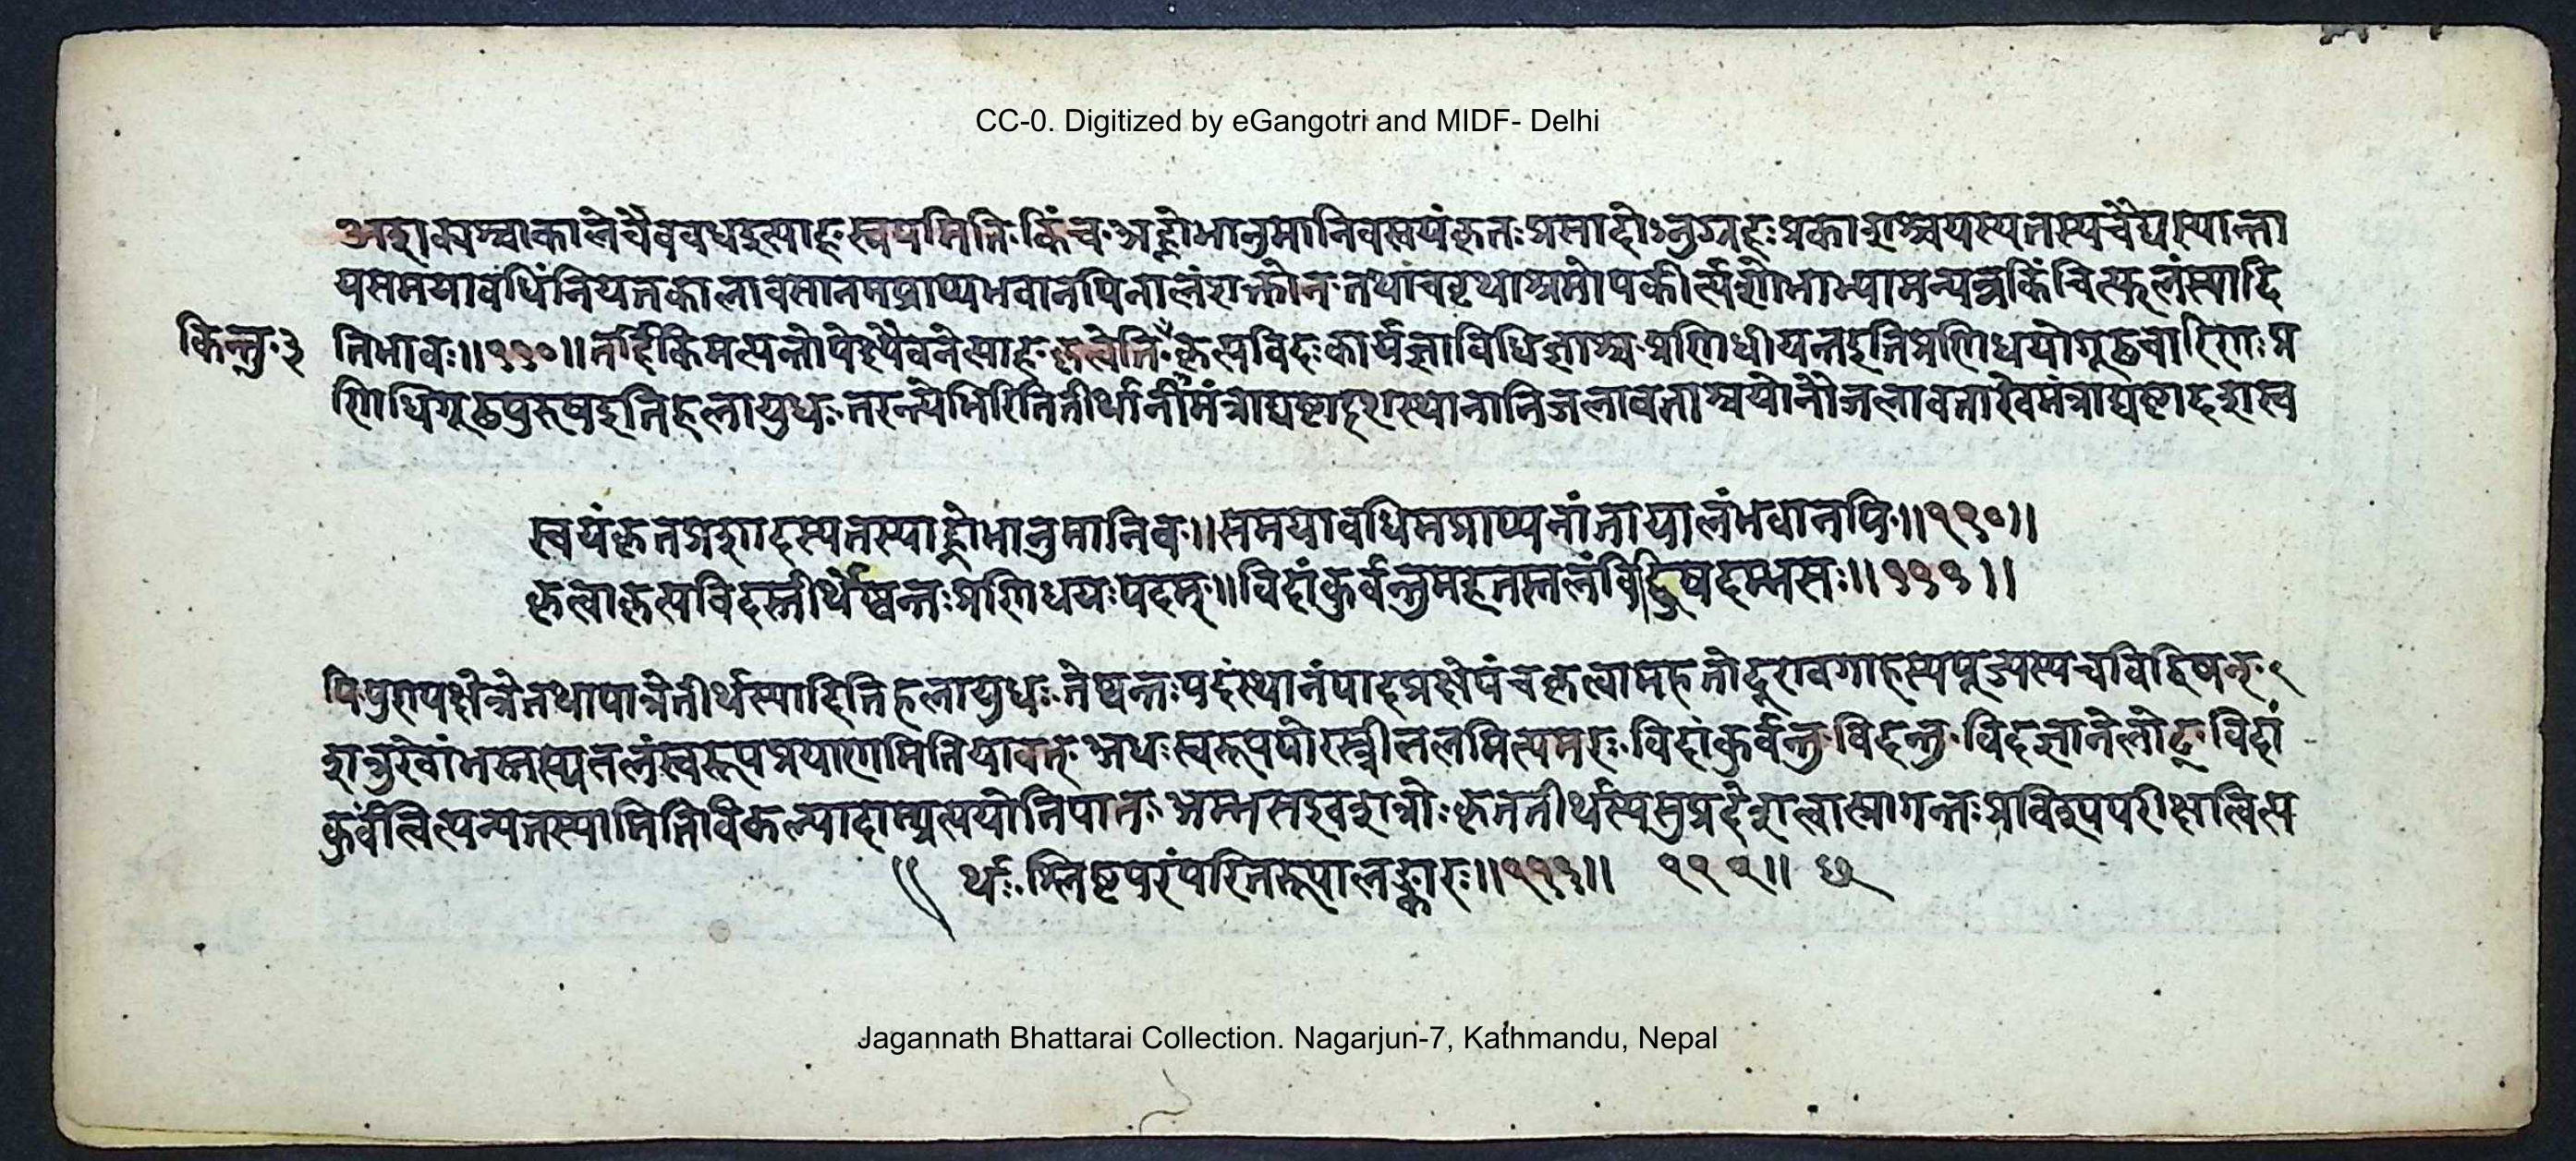 CC-0. Digitized by eGangotri and MIDF- Delhi
अशक्यश्चाकाले चैद्यवध इत्याह स्वयमिति किंच अह्नो भानुमानिव स्वयंकृतः प्रसादोऽनुग्रहः प्रकाशश्च यस्य तस्य चैद्यस्यान्ता
य समयावधिं नियतकालावसानमप्राप्य भवानपि नालं शक्तो न तथा च वृथाश्रमोपकीर्त्य शोभाभ्यामन्यन्न किंचित्फलं स्यादि
किन्तु ३
तिभावः ॥ ११० ॥ तर्हि किमत्यन्तोपेक्ष्यैव नेत्याह कृत्वेति कृत्यविदः कार्यज्ञा विधिज्ञाश्च प्रणिधीयन्त इति प्रणिधयो गूढचारिणः प्र
णिधिर्गूढपुरुष इति हलायुधः तरन्त्येभिरिति तीर्थानि मंत्राद्यष्टादशस्थानानि जलावताराश्च योनौ जलावतारे च मंत्राद्यष्टादशस्व
स्वयंकृतप्रशादस्य तस्याह्नो भानुमानिव ॥ समयावधिमप्राप्य नांतायालं भवानपि ॥ ११० ॥
कृत्वा कृत्यविदस्तीर्थेष्वन्तः प्रणिधयः पदम् ॥ विदांकुर्वन्तु महतस्तलं विद्विषदम्भसः ॥ १११ ॥
पि पुण्यक्षेत्रे तथा पात्रे तीर्थं स्यादिति हलायुधः तेष्वन्तः पदं स्थानं पादप्रक्षेपं च कृत्वा महतो दूरावगाहस्य पूज्यस्य च विद्विषन्
शत्रुरेवांभस्तस्य तलं स्वरूपप्रयाणमिति यावत् अधः स्वरूपयोरस्त्री तलमित्यमरः विदांकुर्वन्तु विदन्तु विद ज्ञाने लोट् विदां
कुर्वंत्वित्यन्यतरस्यामिति विकल्पादाम्प्रत्ययो निपातः अम्भस इव शत्रोः कृततीर्थस्य सुप्रदेशत्वात्प्रागन्तः प्रविश्य परीक्षात्वित्य
र्थः श्लिष्टपरंपरितरूपालङ्कारः ॥ १११ ॥ ११२ ॥ छ
Jagannath Bhattarai Collection. Nagarjun-7, Kathmandu, Nepal